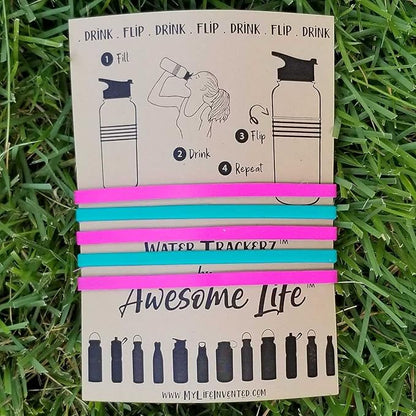 . DRINK . FLIP . DRINK . FLIP . DRINK . FLIP . DRINK
1 Fill
3 Flip
2 Drink
4 Repeat
WATER TRACKERZ™
by
AWESOME LIFE™
WWW.MYLIFEINVENTED.COM